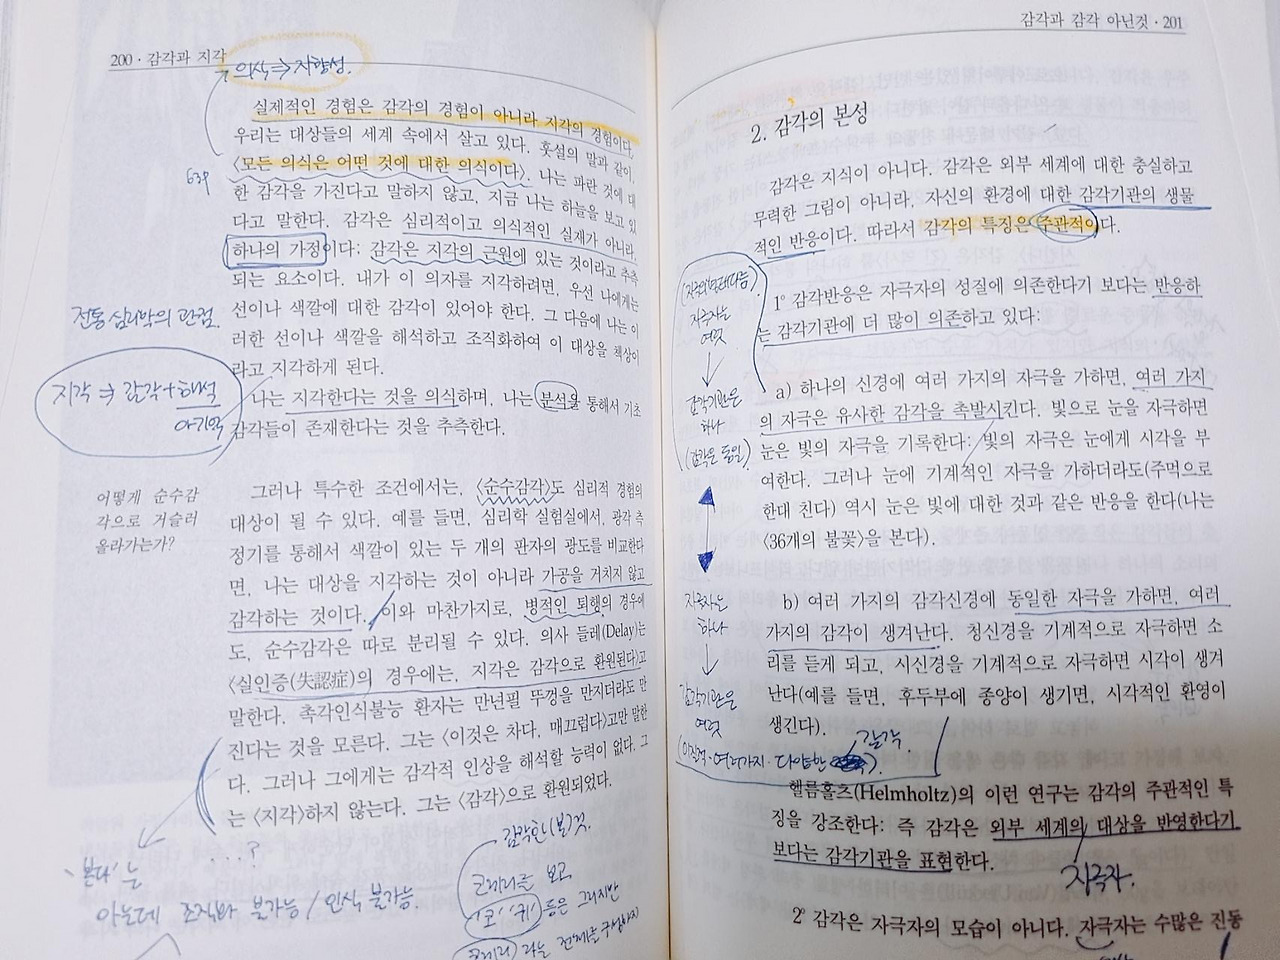 200 · 감각과 지각
의식⇒지향성.
실제적인 경험은 감각의 경험이 아니라 지각의 경험이다.
우리는 대상들의 세계 속에서 살고 있다. 훗설의 말과 같이,
〈모든 의식은 어떤 것에 대한 의식이다〉. 나는 파란 것에 대
한 감각을 가진다고 말하지 않고, 지금 나는 하늘을 보고 있
다고 말한다. 감각은 심리적이고 의식적인 실재가 아니라,
하나의 가정이다: 감각은 지각의 근원에 있는 것이라고 추측
되는 요소이다. 내가 이 의자를 지각하려면, 우선 나에게는
선이나 색깔에 대한 감각이 있어야 한다. 그 다음에 나는 이
러한 선이나 색깔을 해석하고 조직화하여 이 대상을 책상이
라고 지각하게 된다.
나는 지각한다는 것을 의식하며, 나는 분석을 통해서 기초
감각들이 존재한다는 것을 추측한다.
전통 심리학의 관점.
지각 ⇒ 감각+해석
기억
어떻게 순수감
각으로 거슬러
올라가는가?
그러나 특수한 조건에서는, 〈순수감각〉도 심리적 경험의
대상이 될 수 있다. 예를 들면, 심리학 실험실에서, 광각 측
정기를 통해서 색깔이 있는 두 개의 판자의 광도를 비교한다
면, 나는 대상을 지각하는 것이 아니라 가공을 거치지 않고
감각하는 것이다. 이와 마찬가지로, 병적인 퇴행의 경우에
도, 순수감각은 따로 분리될 수 있다. 의사 들레(Delay)는
〈실인증(失認症)의 경우에는, 지각은 감각으로 환원된다〉고
말한다. 촉각인식불능 환자는 만년필 뚜껑을 만지더라도 만
진다는 것을 모른다. 그는 〈이것은 차다, 매끄럽다〉고만 말한
다. 그러나 그에게는 감각적 인상을 해석할 능력이 없다. 그
는 〈지각〉하지 않는다. 그는 〈감각〉으로 환원되었다.
'본다'는 ...?
아는데 조직화 불가능 / 인식 불가능.
감각한(본)것.
코끼리를 보고
'코' '귀' 등은 그러지만
코끼리 라는 전체를 구성하지
감각과 감각 아닌것 · 201
2. 감각의 본성
감각은 지식이 아니다. 감각은 외부 세계에 대한 충실하고
무력한 그림이 아니라, 자신의 환경에 대한 감각기관의 생물
적인 반응이다. 따라서 감각의 특징은 주관적이다.
1° 감각반응은 자극자의 성질에 의존한다기 보다는 반응하
는 감각기관에 더 많이 의존하고 있다:
자극자는
여럿
↓
감각기관은
하나
(감각은 동일)
a) 하나의 신경에 여러 가지의 자극을 가하면, 여러 가지
의 자극은 유사한 감각을 촉발시킨다. 빛으로 눈을 자극하면
눈은 빛의 자극을 기록한다: 빛의 자극은 눈에게 시각을 부
여한다. 그러나 눈에 기계적인 자극을 가하더라도(주먹으로
한대 친다) 역시 눈은 빛에 대한 것과 같은 반응을 한다(나는
〈36개의 불꽃〉을 본다).
자극자는
하나
↓
감각기관은
여럿
b) 여러 가지의 감각신경에 동일한 자극을 가하면, 여러
가지의 감각이 생겨난다. 청신경을 기계적으로 자극하면 소
리를 듣게 되고, 시신경을 기계적으로 자극하면 시각이 생겨
난다(예를 들면, 후두부에 종양이 생기면, 시각적인 환영이
생긴다).
여러가지 · 다양한 감각
헬름홀츠(Helmholtz)의 이런 연구는 감각의 주관적인 특
징을 강조한다: 즉 감각은 외부 세계의 대상을 반영한다기
보다는 감각기관을 표현한다.
자극자.
2° 감각은 자극자의 모습이 아니다. 자극자는 수많은 진동